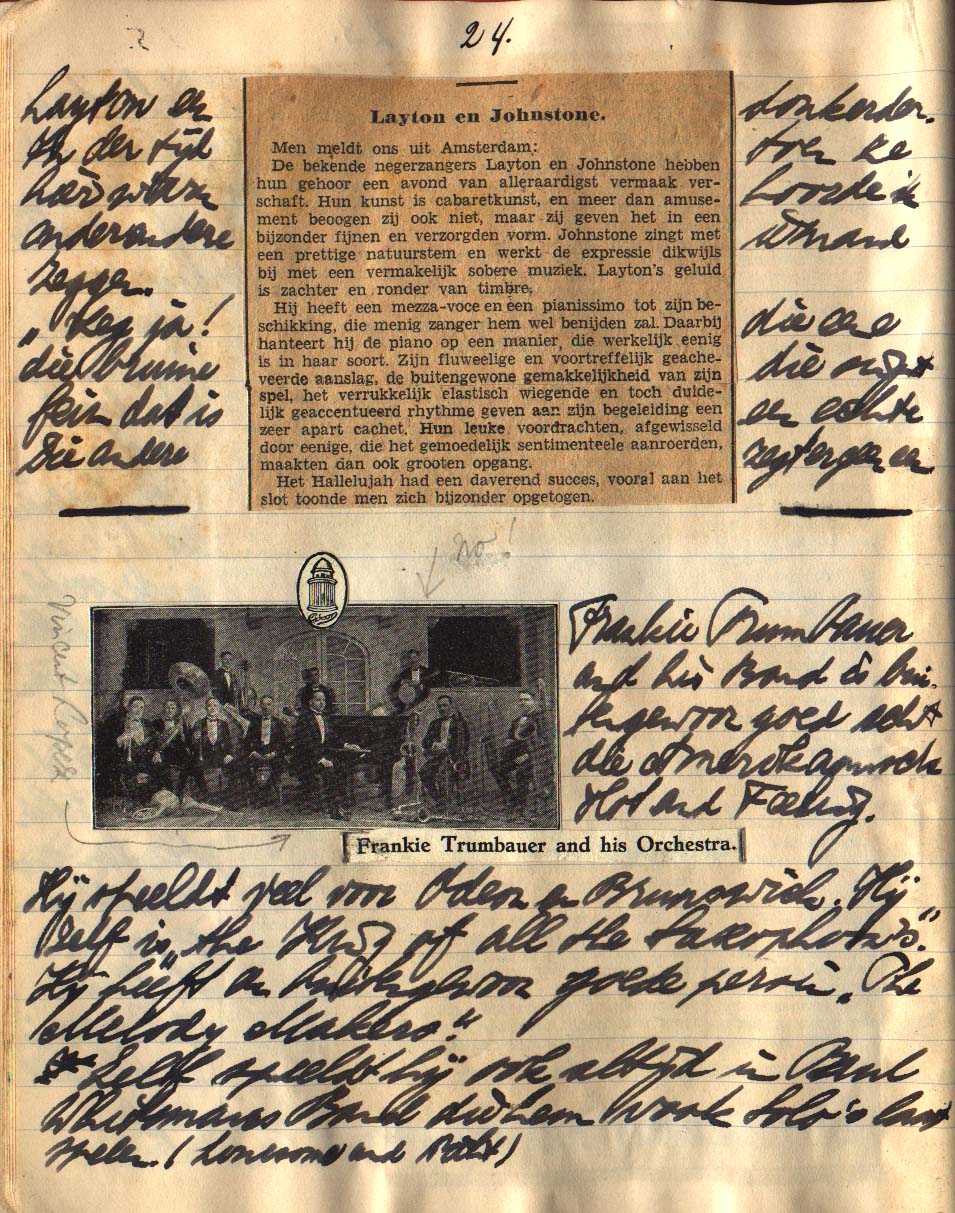 24.
Layton en
In der tijd
anderandere
zeggen..
„Zeg ja!
die bruine
fein dat is
Die andere
Layton en Johnstone.
Men meldt ons uit Amsterdam:
De bekende negerzangers Layton en Johnstone hebben
hun gehoor een avond van alleraardigst vermaak ver-
schaft. Hun kunst is cabaretkunst, en meer dan amuse-
ment beoogen zij ook niet, maar zij geven het in een
bijzonder fijnen en verzorgden vorm. Johnstone zingt met
een prettige natuurstem en werkt de expressie dikwijls
bij met een vermakelijk sobere muziek. Layton's geluid
is zachter en ronder van timbre.
Hij heeft een mezza-voce en een pianissimo tot zijn be-
schikking, die menig zanger hem wel benijden zal. Daarbij
hanteert hij de piano op een manier, die werkelijk eenig
is in haar soort. Zijn fluweelige en voortreffelijk geache-
veerde aanslag, de buitengewone gemakkelijkheid van zijn
spel, het verrukkelijk elastisch wiegende en toch duide-
lijk geaccentueerd rhythme geven aan zijn begeleiding een
zeer apart cachet. Hun leuke voordrachten, afgewisseld
door eenige, die het gemoedelijk sentimenteele aanroerden,
maakten dan ook grooten opgang.
Het Hallelujah had een daverend succes, vooral aan het
slot toonde men zich bijzonder opgetogen.
donkerder.
toen ze
hoorde ik
iemand
die eene
die
en echte
no!
Vincent Lopez
Odeon
Frankie Trumbauer and his Orchestra.
Frankie Trumbauer
and his Band is bui-
tengewoon goed echt
die Amerikaansch
Hot and Feeling.
Hij speeldt veel voor Odeon en Brunswich. Hij
Self is „the King of all the Saxophonis".
Hij heeft een buitengewoon goede pers in „The
Melody Makers."
Zelf speeldt hij ook altijd in Paul
Whitemans Band die hem vaak Solo's laat
spelen. (Lonesome and)